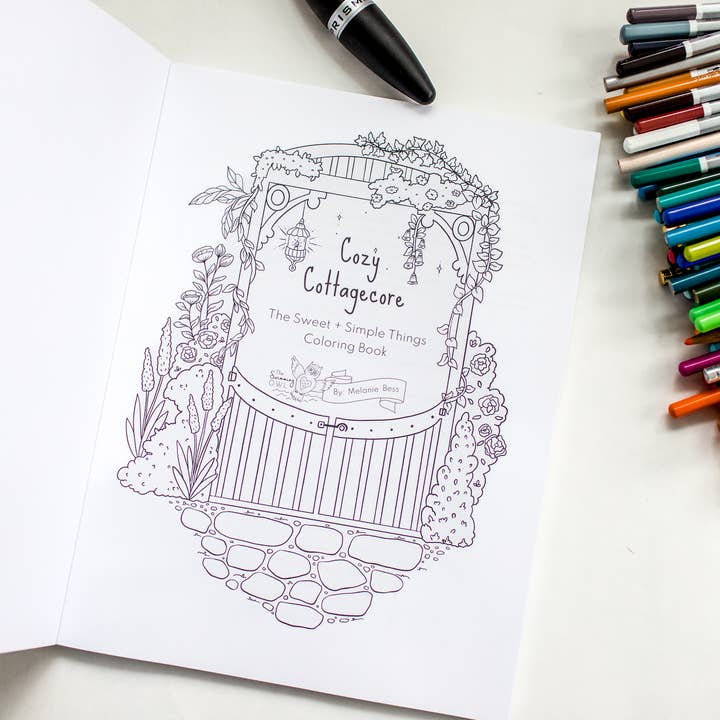 PRISM
Cozy
Cottagecore
The Sweet + Simple Things
Coloring Book
The
OWL
By: Melanie Bess